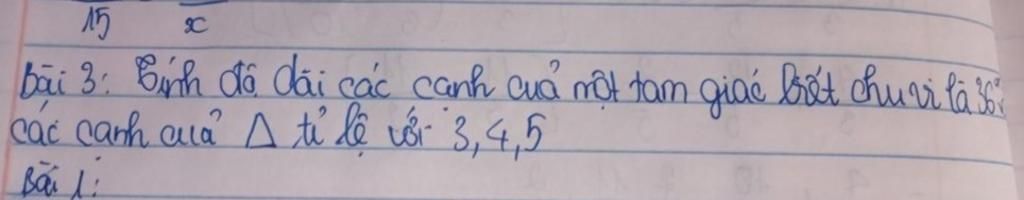 15 x
Bài 3: Tính độ dài các cạnh của một tam giác biết chu vi là 36
các cạnh của Δ tỉ lệ với 3, 4, 5
Bài 1: